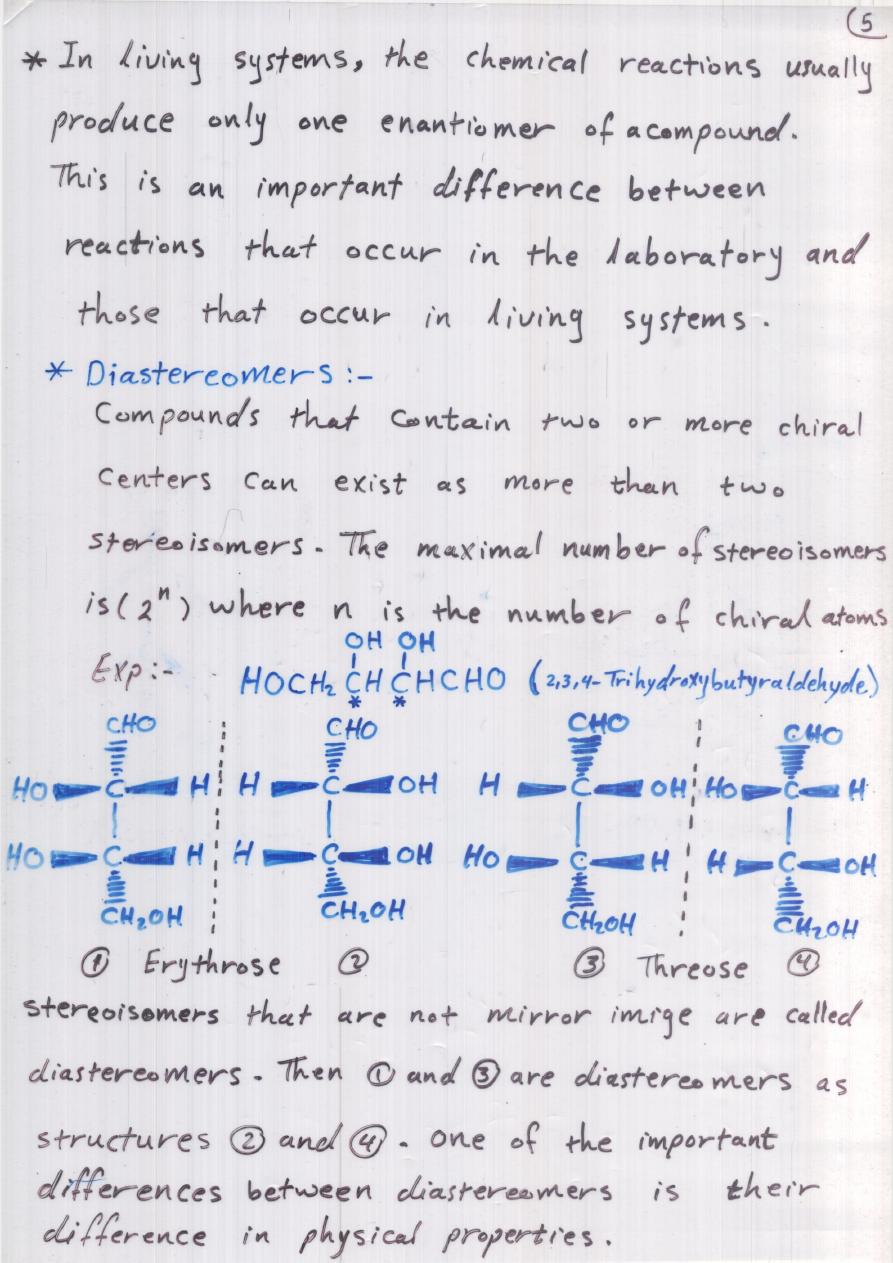 5
* In living systems, the chemical reactions usually
produce only one enantiomer of a compound.
This is an important difference between
reactions that occur in the laboratory and
those that occur in living systems.
* Diastereomers :-
Compounds that contain two or more chiral
Centers Can exist as more than two
stereoisomers. The maximal number of stereoisomers
is (2ⁿ) where n is the number of chiral atoms
OH OH
Exp:- HOCH₂ CH CHCHO (2,3,4-Trihydroxybutyraldehyde)
* *
CHO CHO CHO CHO
HO C H H C OH H C OH HO C H
HO C H H C OH HO C H H C OH
CH₂OH CH₂OH CH₂OH CH₂OH
① Erythrose ② ③ Threose ④
stereoisomers that are not mirror imige are called
diastereomers. Then ① and ③ are diastereomers as
structures ② and ④. One of the important
differences between diastereomers is their
difference in physical properties.